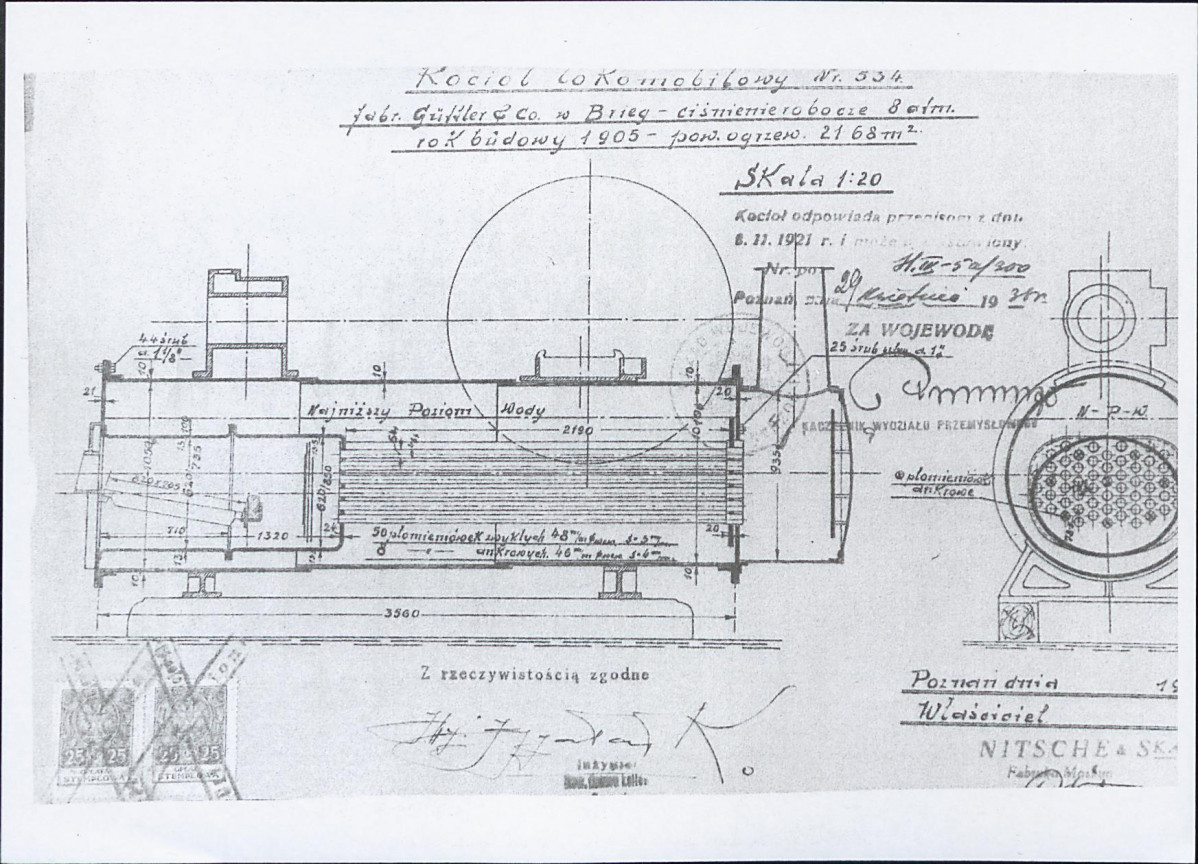 Kocioł lokomobilowy Nr. 534
fabr. Güttler & Co. w Brieg – ciśnienie robocze 8 atm.
rok budowy 1905 – pow. ogrzew. 21 68 m².
Skala 1:20
Kocioł odpowiada przepisom z dnia
8. 11. 1921 r. i może
Nr. po
H.III-5a/300
Poznań, 29 kwietnia 19 36r.
ZA WOJEWODĘ
NACZELNIK WYDZIAŁU PRZEMYSŁOWEGO
44 śrub
a. 1 1/8"
25 śrub a. 1"
10
10
10
21
20
Najniższy Poziom Wody
2190
N-P-W.
1050
620/785
620x705
620/820
1010
935
710
1320
20
20
50 płomieniówek zwykłych 48 m/m s-3 m/m
ankrowych. 46 m/m s-4 m/m
płomieniówki
ankrowe
13
10
10
3560
Z rzeczywistością zgodne
Inżynier
25 25
25 25
STEMPLOWA
STEMPLOWA
Poznań dnia 19
Właściciel
NITSCHE & SKA
Fabryka Maszyn